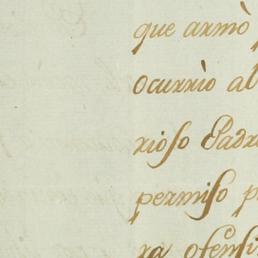 que armò
Ocurriò al
rioso Padr
permiso p
ra ofensi